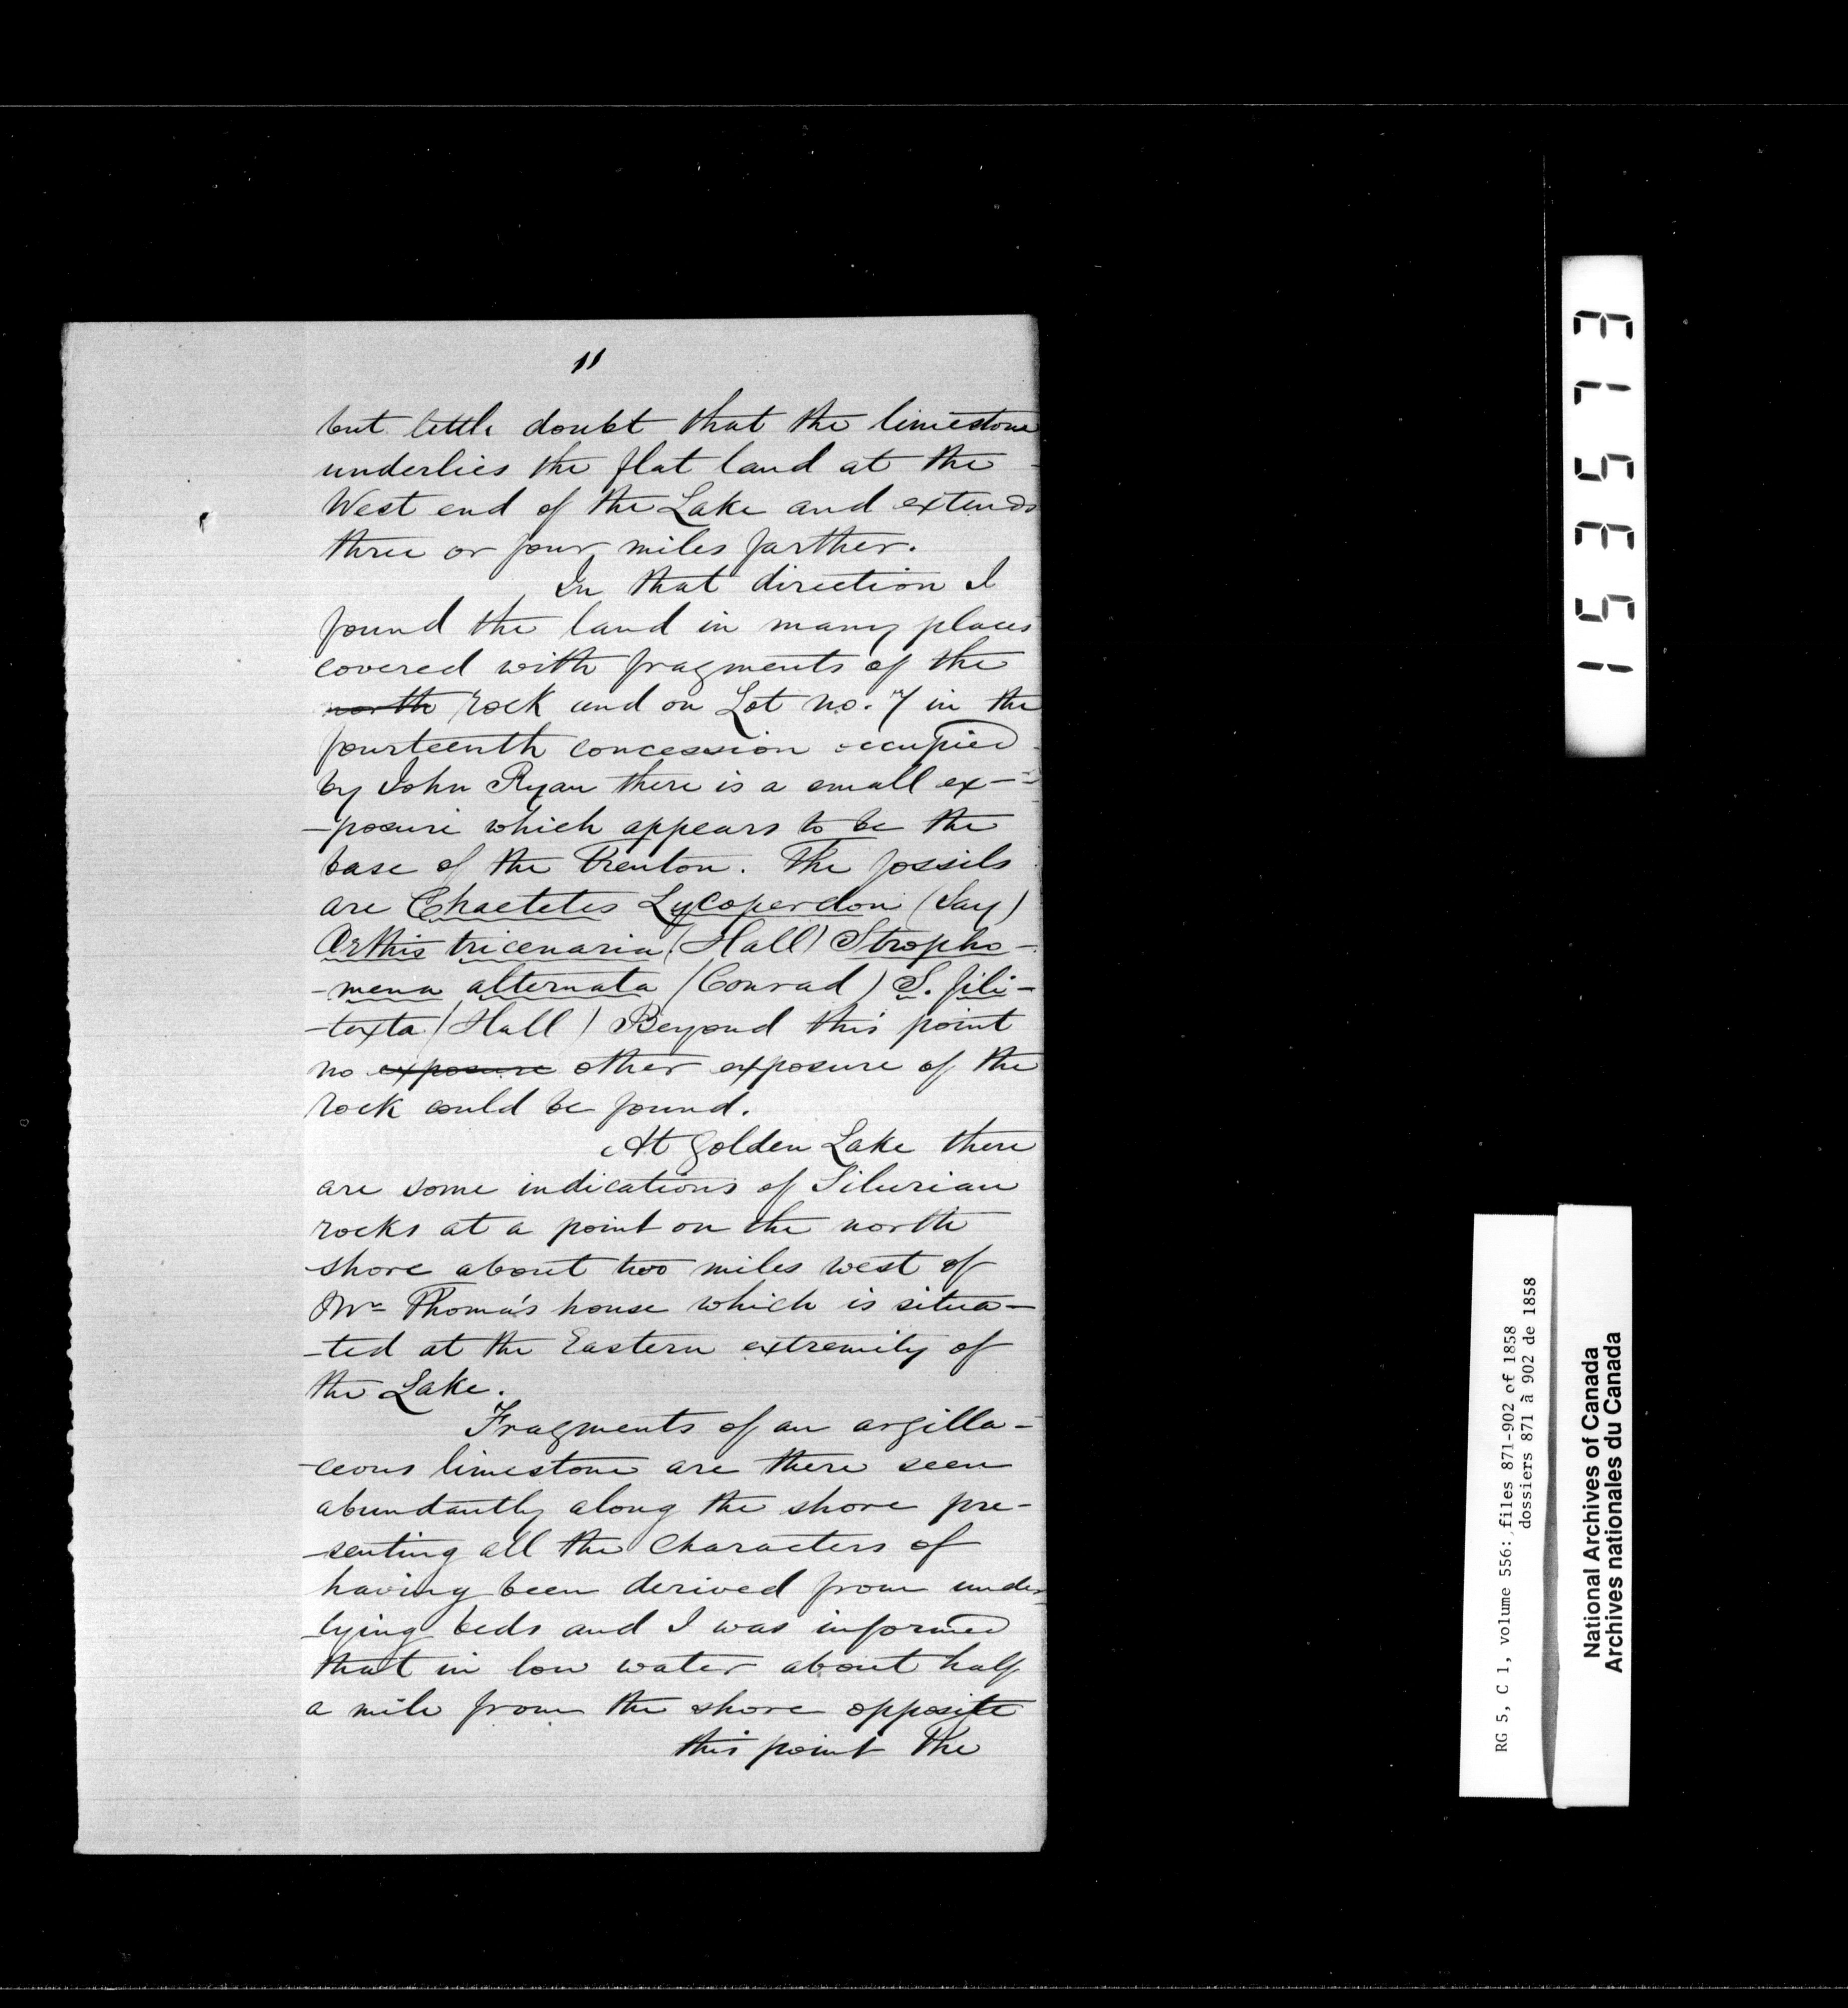 11
but little doubt that the limestone
underlies the flat land at the
West end of the Lake and extends
three or four miles farther.
In that direction I
found the land in many places
covered with fragments of the
north rock and on Lot no. 7 in the
fourteenth concession occupied
by John Ryan there is a small ex-
-posure which appears to be the
base of the Trenton. The fossils
are Chaetetes Lycoperdon (Say)
Orthis tricenaria (Hall) Stropho-
-mena alternata (Conrad) S. fili-
-texta (Hall) Beyond this point
no exposure other exposure of the
rock could be found.
At Golden Lake there
are some indications of Silurian
rocks at a point on the north
shore about two miles west of
Mr Thoma's house which is situa-
-ted at the Eastern extremity of
the Lake.
Fragments of an argilla-
-ceous limestone are there seen
abundantly along the shore pre-
-senting all the Characters of
having been derived from under-
-lying beds and I was informed
that in low water about half
a mile from the shore opposite
this point the
153573
RG 5, C 1, volume 556: files 871-902 of 1858
dossiers 871 à 902 de 1858
National Archives of Canada
Archives nationales du Canada